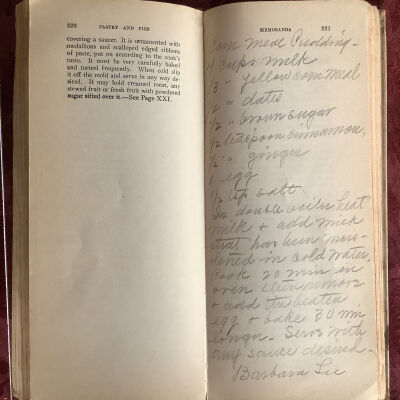 220 PASTRY AND PIES
covering a saucer. It is ornamented with
medallions and scalloped edged ribbons
of paste, put on according to the cook's
taste. It must be very carefully baked
and turned frequently. When cold slip
it off the mold and serve in any way de-
sired. It may hold creamed treat, any
stewed fruit or fresh fruit with powdered
sugar sifted over it.—See Page XXI.
MEMORANDA 221
Corn Meal Pudding-
4 cups milk
1/3 " yellow corn meal
1/2 " dates
1/2 " brown sugar
1/2 teaspoon cinnamon,
1/2 " " ginger
1 egg
1/2 tsp salt
In double boiler heat
milk + add
that has been mois-
tened in cold water.
Cook 20 min in
oven
+ add the beaten
egg + bake 30 min
longer. Serve with
any sauce desired-
Barbara Lee